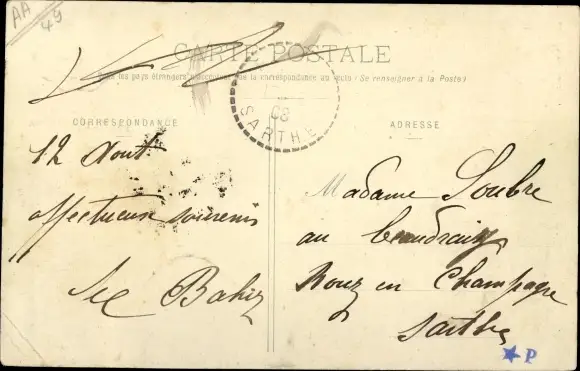 AA
49
CARTE POSTALE
Tous les pays étrangers n'acceptent pas la correspondance au recto (Se renseigner à la Poste)
CORRESPONDANCE
ADRESSE
08
SARTHE
12 Aout
affectueux souvenir
Madame Soubre
au
Rouez en Champagne
Sarthe
P